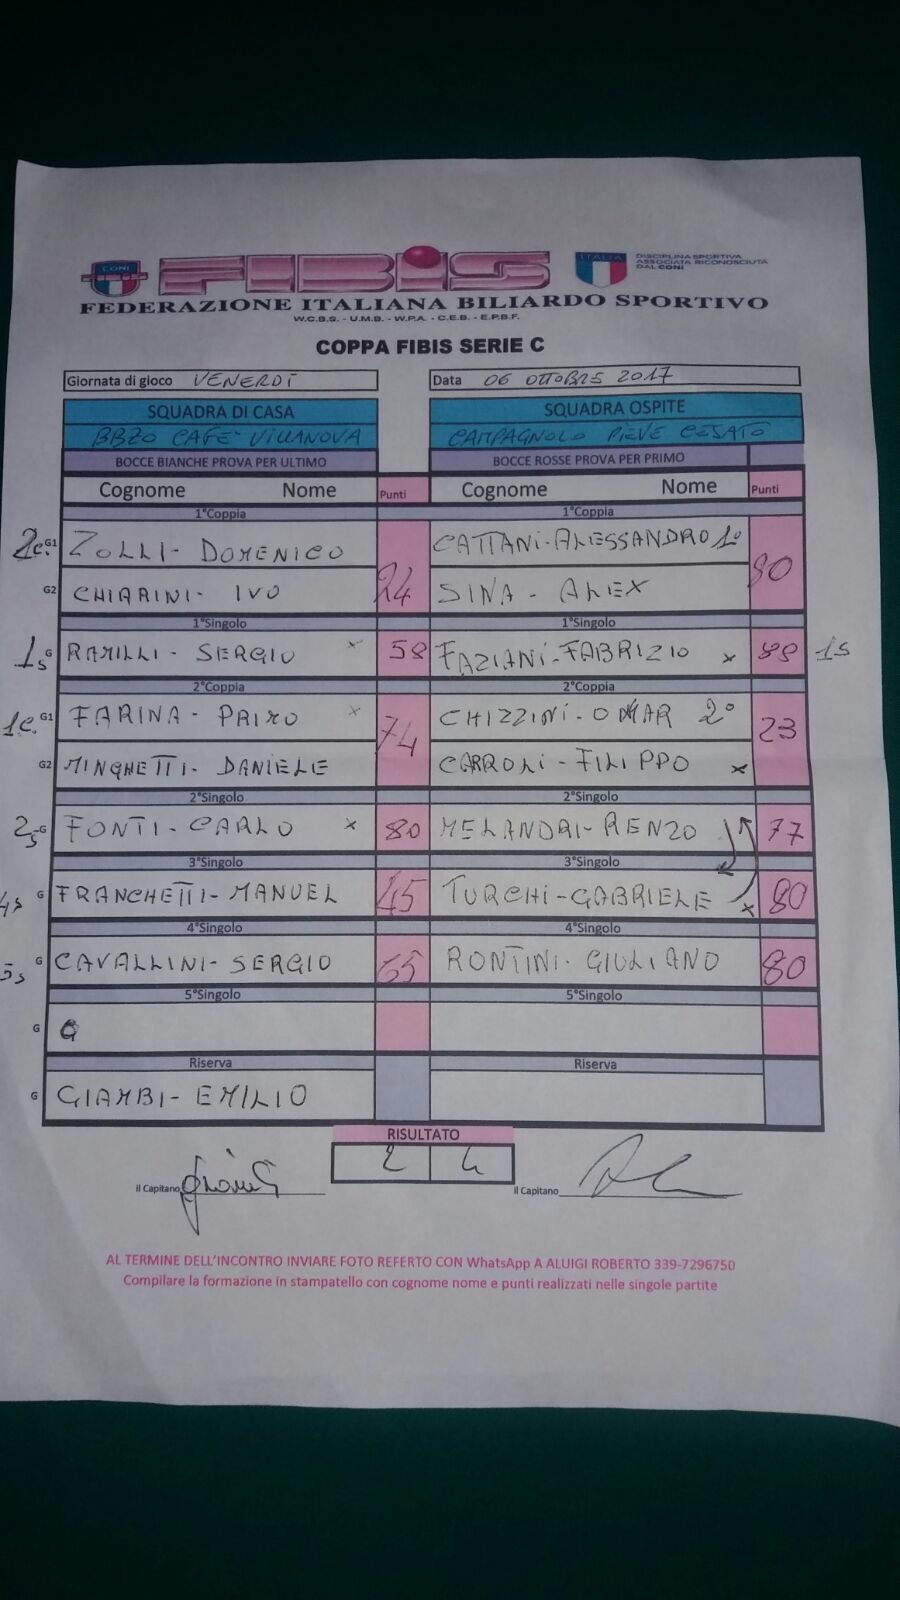 CONI
FIBIS
ITALIA
DISCIPLINA SPORTIVA
ASSOCIATA RICONOSCIUTA
DAL CONI
FEDERAZIONE ITALIANA BILIARDO SPORTIVO
W.C.B.S. - U.M.B. - W.P.A. - C.E.B. - E.P.B.F.
COPPA FIBIS SERIE C
Giornata di gioco VENERDÌ Data 06 OTTOBRE 2017
SQUADRA DI CASA SQUADRA OSPITE
BBZO CAFE-VILLANOVA CAMPAGNOLO PIEVE CESATO
BOCCE BIANCHE PROVA PER ULTIMO BOCCE ROSSE PROVA PER PRIMO
Cognome Nome Punti Cognome Nome Punti
1°Coppia 1°Coppia
2c. G1 ZOLLI- DOMENICO CATTANI-ALESSANDRO 1°
24 80
G2 CHIARINI- IVO SINA - ALEX
1°Singolo 1°Singolo
1s G RAMILLI- SERGIO x 58 FAZIANI-FABRIZIO x 88 1S
2°Coppia 2°Coppia
1c. G1 FARINA- PRIMO x CHIZZINI-OMAR 2°
74 23
G2 MINGHETTI- DANIELE CARROLI-FILIPPO x
2°Singolo 2°Singolo
2s G FONTI-CARLO x 80 MELANDRI-RENZO 77
3°Singolo 3°Singolo
4s G FRANCHETTI-MANUEL 45 TURCHI-GABRIELE x 80
4°Singolo 4°Singolo
5s G CAVALLINI-SERGIO 65 RONTINI-GIULIANO 80
5°Singolo 5°Singolo
G
Riserva Riserva
G GIAMBI-EMILIO
RISULTATO
2 4
il Capitano il Capitano
AL TERMINE DELL'INCONTRO INVIARE FOTO REFERTO CON WhatsApp A ALUIGI ROBERTO 339-7296750
Compilare la formazione in stampatello con cognome nome e punti realizzati nelle singole partite